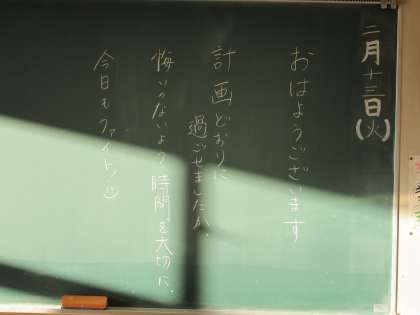 二月十三日(火)
おはようございます
計画どおりに
過ごせましたか。
悔いのないよう時間を大切に。
今日もファイト!